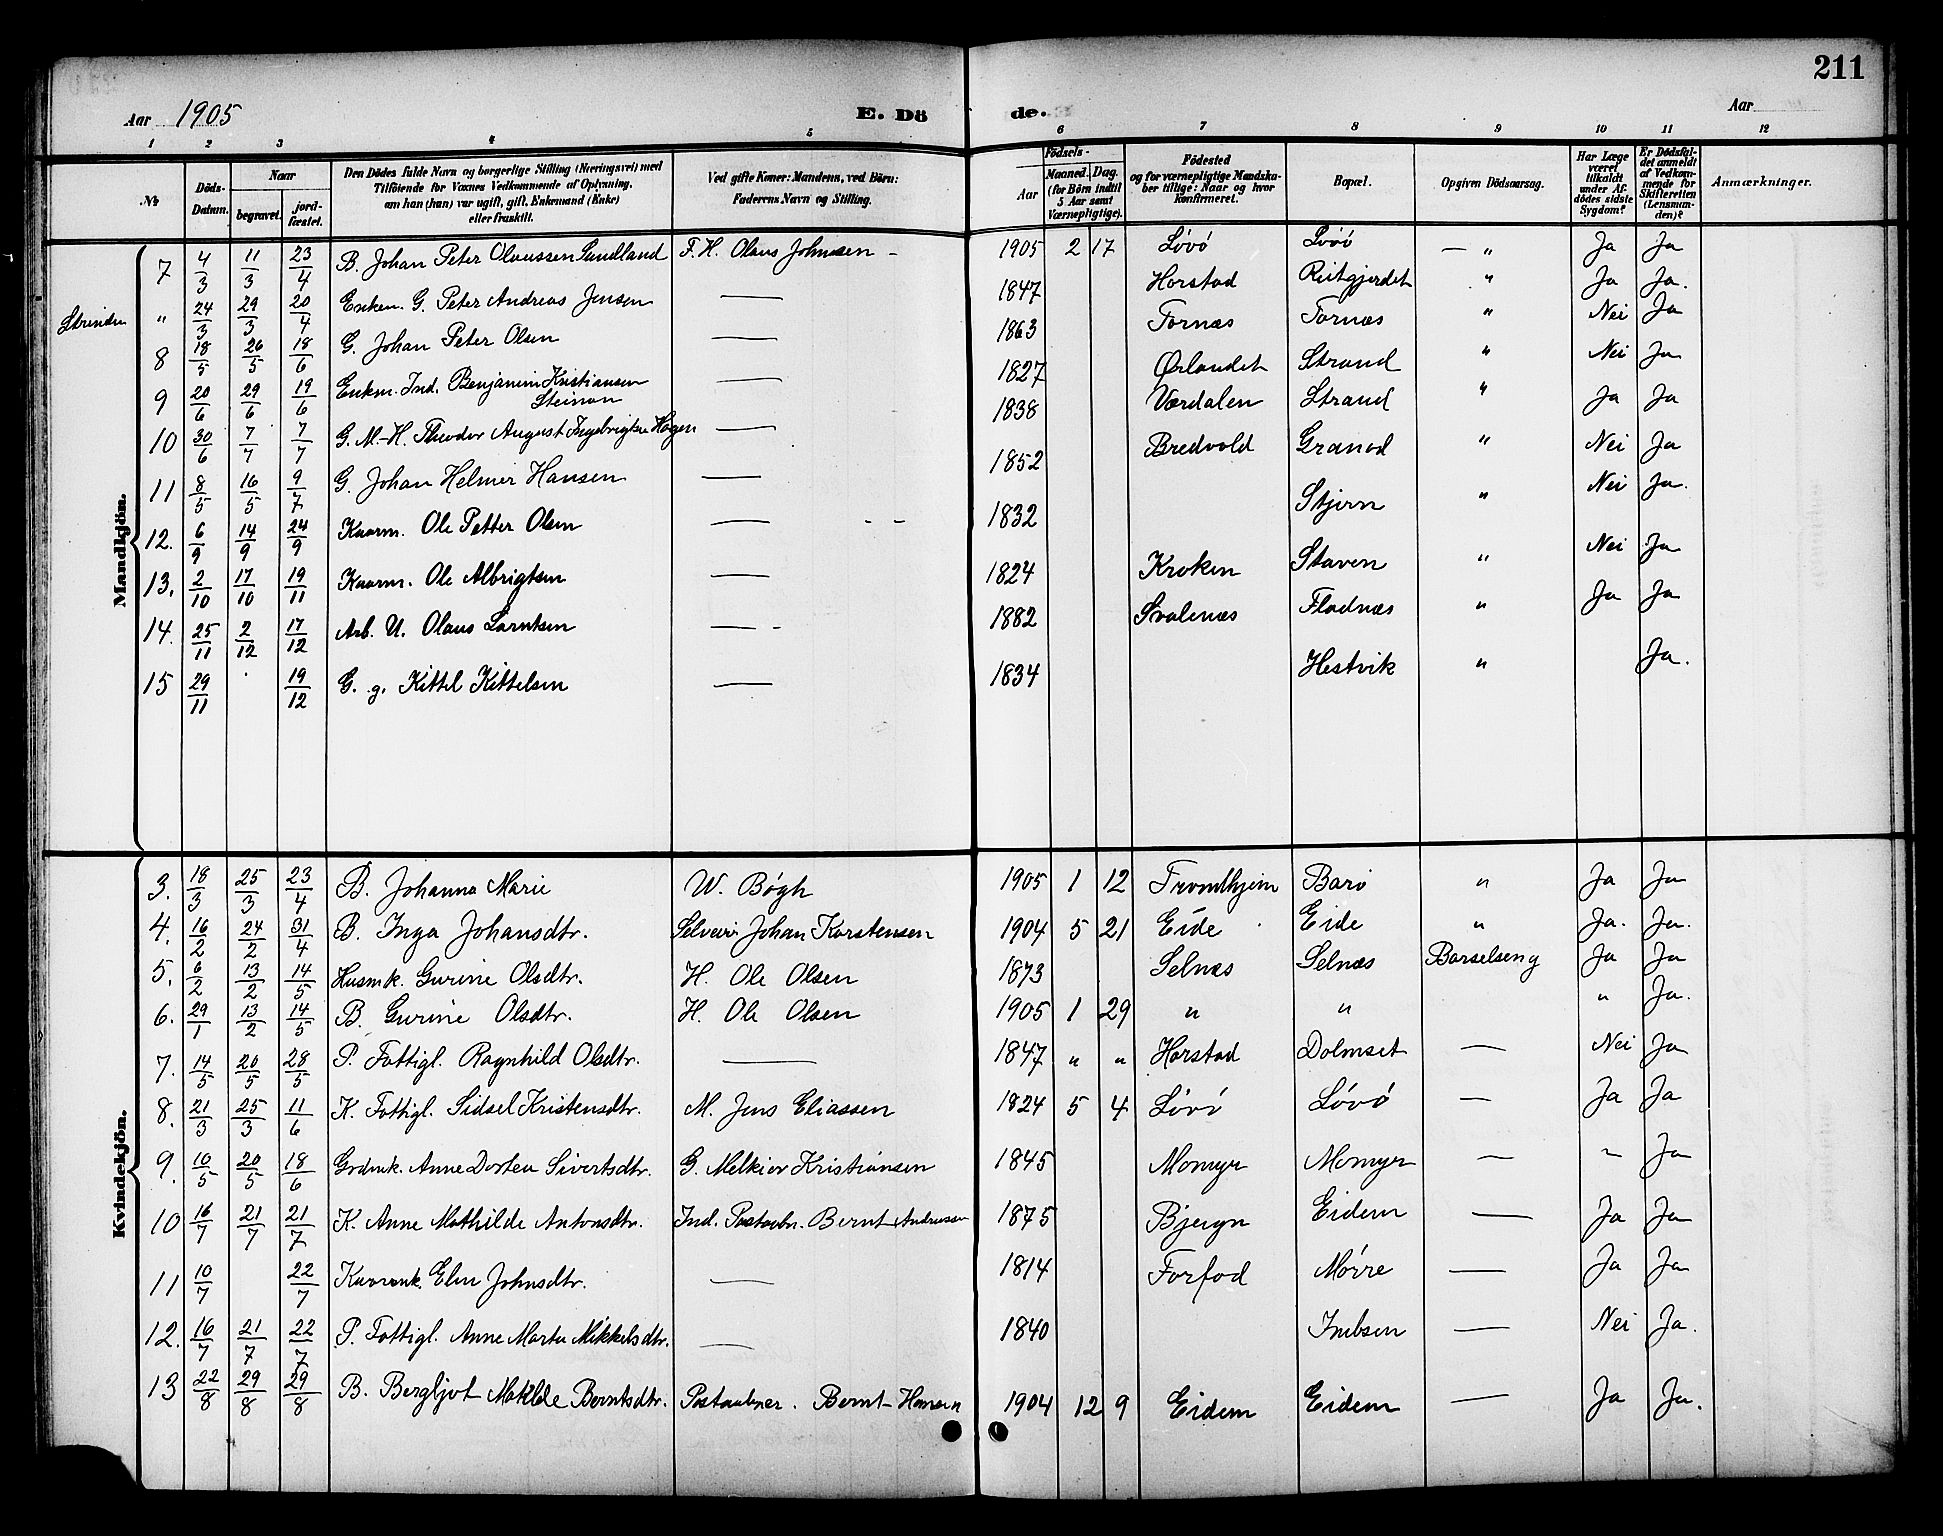 211
Aar 1905 E. Dö
de. Aar
1 2 3 4 5 6 7 8 9 10 11 12
№ Döds-Datum. Naar begravet. jord-fæstet. Den Dödes fulde Navn og borgerlige Stilling (Næringsvei) med Tilföiende for Voxnes Vedkommende af Oplysning, om han (hun) var ugift, gift, Enkemand (Enke) eller fraskilt. Ved gifte Koner: Mandens, ved Börn: Faderens Navn og Stilling. Födsels- Aar Maaned. Dag. (for Börn indtil 5 Aar samt Værnepligtige). Födested og for værnepligtige Mandska-ber tillige: Naar og hvor konfirmeret. Bopæl. Opgiven Dödsaarsag. Har Læge været tilkaldt under Af-dödes sidste Sygdom? Er Dödsfal-det anmeldt af Vedkom-mende for Skifteretten (Lensman-den)? Anmærkninger.
Mandkjön.
7 4/3 11/3 23/4 B. Johan Peter Olaussen Sundland F. H. Olaus Johnsen – 1905 2 17 Løvø Løvø — " Ja Ja
Strinden " 24/3 29/3 20/4 Enkem. G. Peter Andreas Jensen — 1847 Harstad Reitgjerdet " Ja Ja.
8 18/5 26/5 18/6 G. Johan Peter Olsen — 1863 Tarnæs Tarnæs " Nei Ja
9 20/6 29/6 19/6 Enkm. Ind. Benjamin Kristiansen Steinan — 1827 Ørlandet Strand " Nei Ja
10 30/6 7/7 7/7 G. M.-H. Theodor August Ingebrigtsen Hagen — 1838 Værdalen Strand " Ja Ja
11 8/5 16/5 9/7 G. Johan Helmer Hansen — 1852 Bredvold Granod " Nei Ja
12. 6/9 14/9 24/9 Kaarm. Ole Petter Olsen — 1832 Stjern " Nei Ja.
13. 2/10 17/10 19/11 Kaarm. Ole Albrigtsen — 1824 Kroken Staven " Nei Ja
14. 25/11 2/12 17/12 Arb. U. Olaus Larntsen — 1882 Svalenæs Fladnæs " Ja Ja
15 29/11 19/12 G. g. Kittil Kittelsen — 1834 Hestvik " Ja.
Kvindekjön.
3. 18/3 25/3 23/4 B. Johanna Marie W. Bøgh 1905 1 12 Trondhjem Barø " Ja Ja
4. 16/2 24/2 31/4 B. Inga Johansdtr. Selveier Johan Karstensen 1904 5 21 Eide Eide " Ja. Ja.
5. 6/2 13/2 14/5 Husmk. Gurine Olsdtr. H. Ole Olsen 1873 Selnæs Selnæs Barselseng Ja Ja
6. 29/1 13/2 14/5 B. Gurine Olsdtr. H. Ole Olsen 1905 1 29 " " " Ja.
7. 14/5 20/5 28/5 P. Fattigl. Ragnhild Olsdtr. — 1847 " " Harstad Dolmset — Nei Ja
8. 21/3 25/3 11/6 K. Fattigl. Sidsel Kristensdtr. M. Jens Eliassen 1824 5 4 Løvø Løvø — Ja Ja
9. 10/5 20/5 18/6 Grdmk. Anne Dortea Sivertsdtr. G. Melkior Kristiansen 1845 Momyr Momyr — " Ja
10 16/7 21/7 21/7 K. Anne Mathilde Antonsdtr. Ind. Postaabn. Bernt Andreasen 1875 Bjeugn Eidem — Ja Ja
11 10/7 22/7 Kaarenk. Elen Johnsdtr. — 1814 Forfod Mørre — Ja Ja
12. 16/7 21/7 22/7 P. Fattigl. Anne Marta Mikkelsdtr. — 1840 Imbsen — Nei Ja.
13 22/8 29/8 29/8 B. Bergljot Matilde Berntsdtr. Postaabner. Bernt Hansen 1904 12 9 Eidem Eidem — Ja Ja.